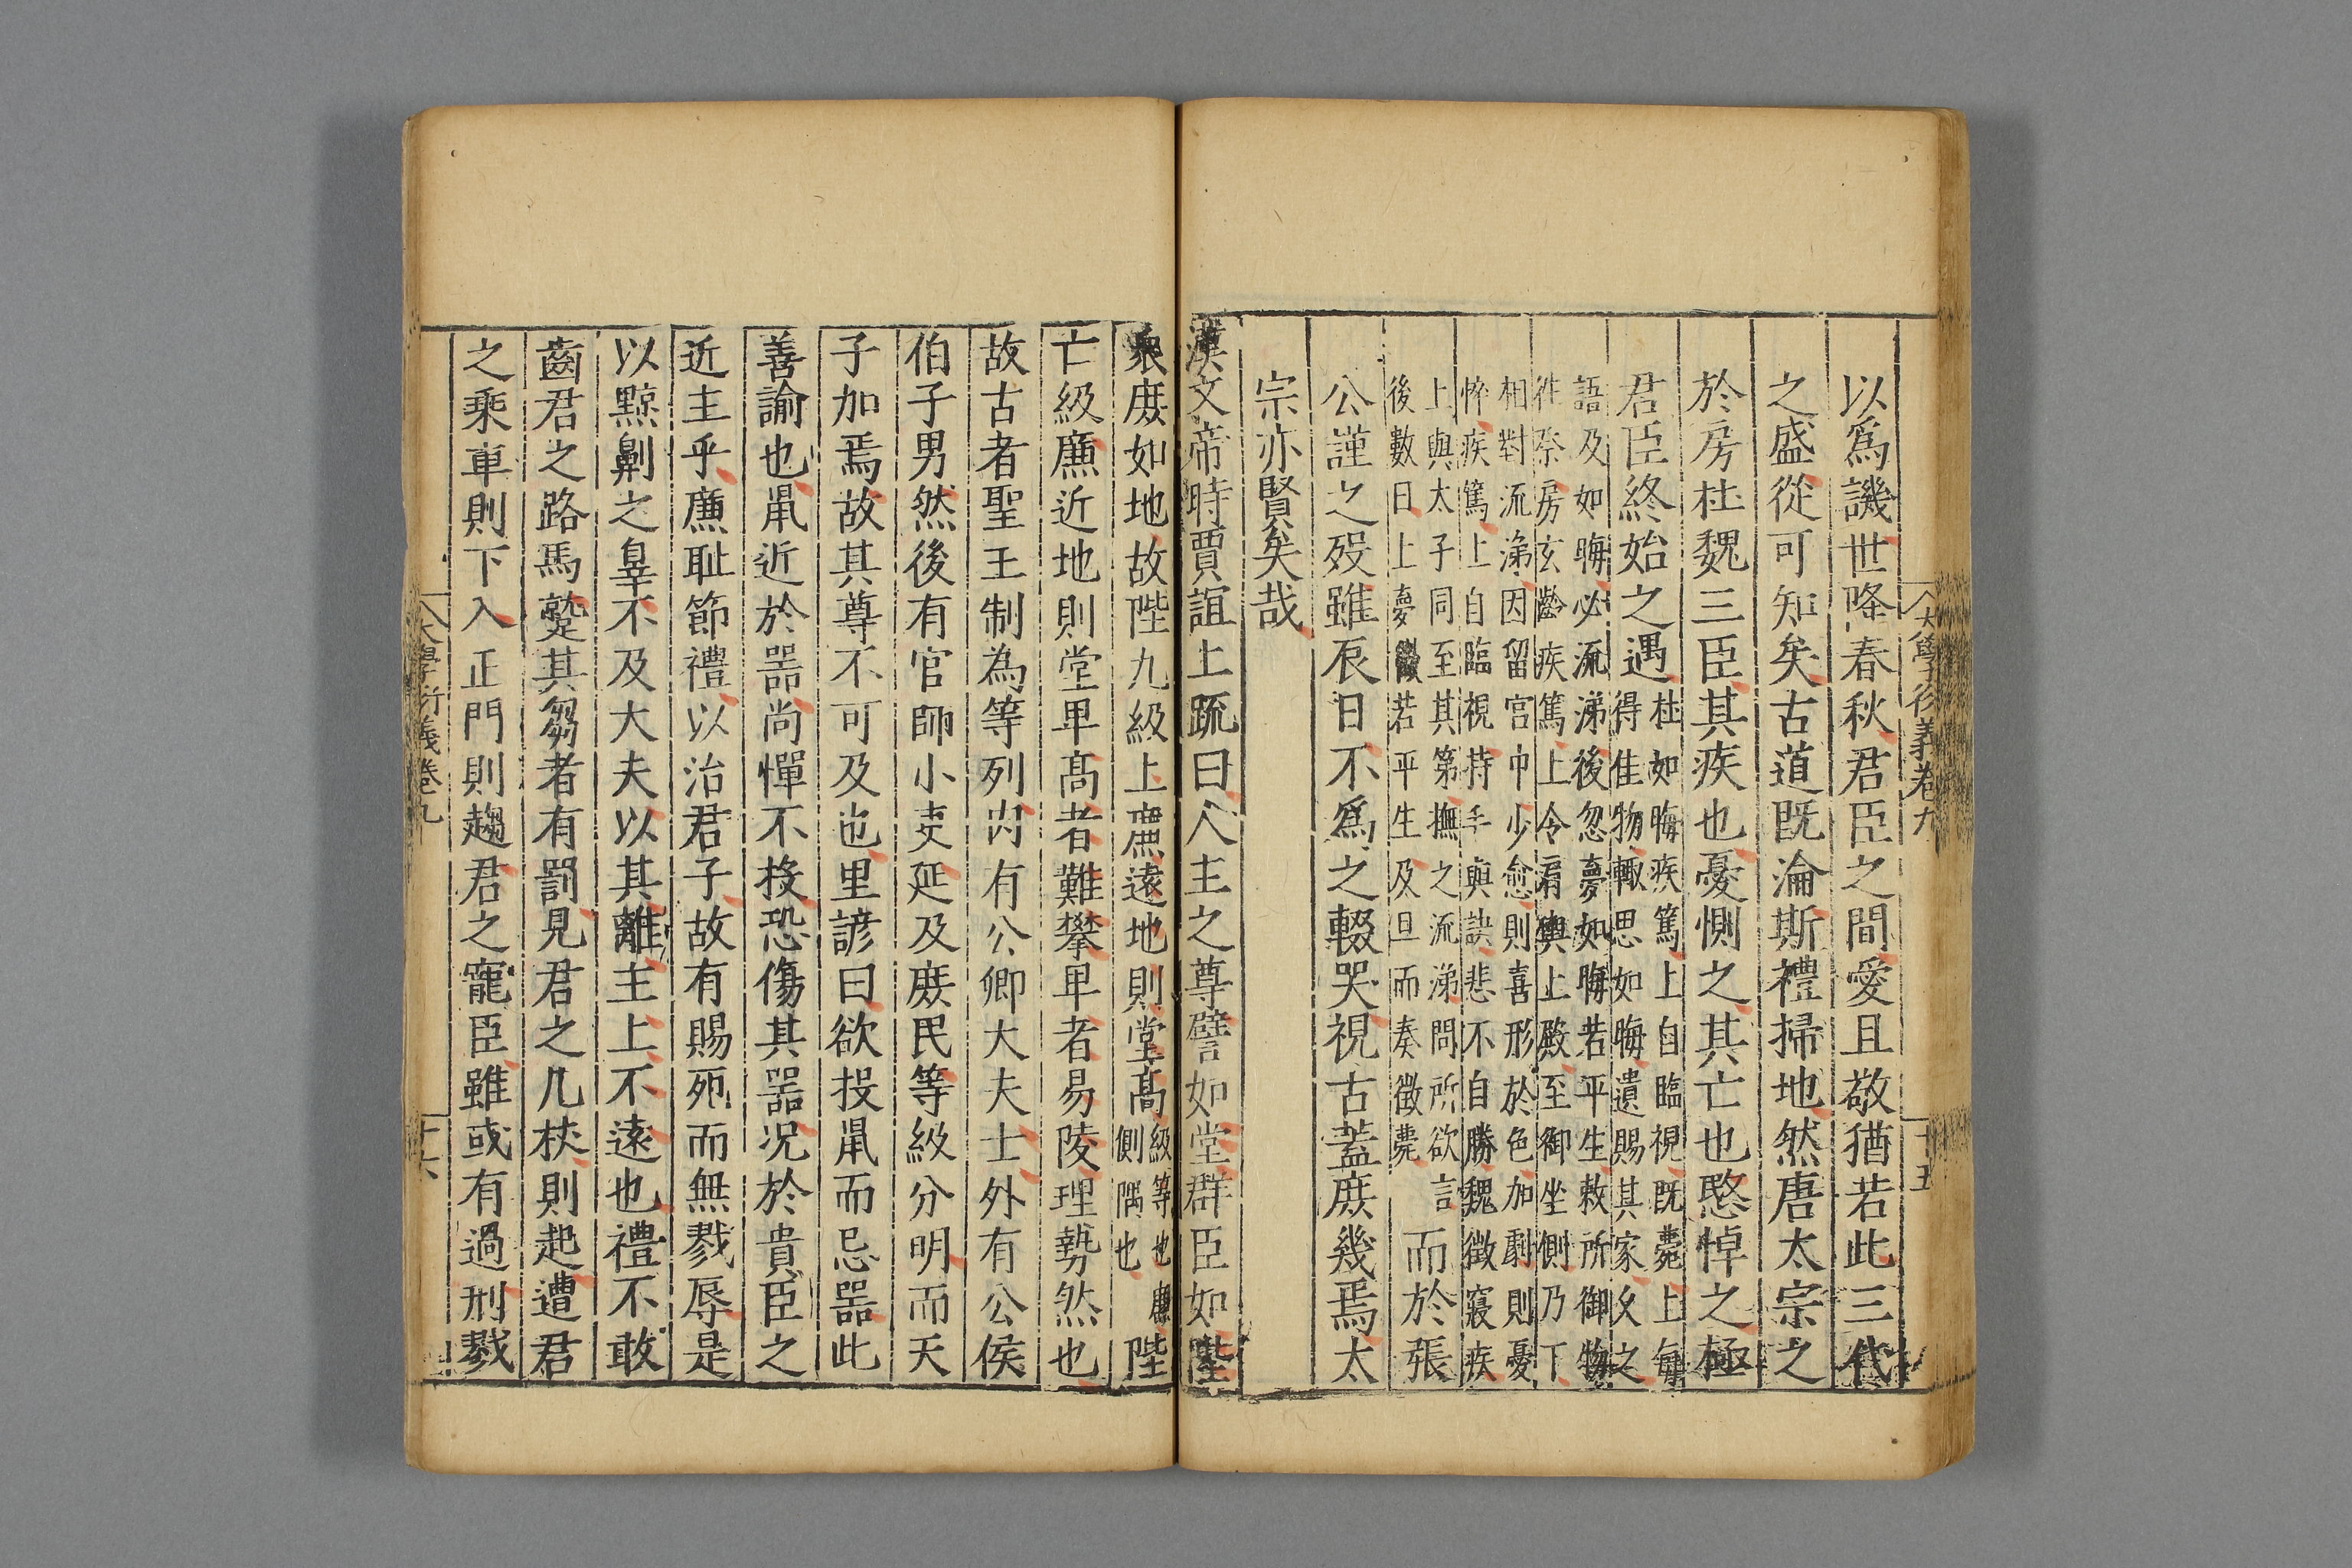 大學衍義卷九
十五
以爲譏世降春秋君臣之間愛且敬猶若此三代
之盛從可知矣古道既淪斯禮掃地然唐太宗之
於房杜魏三臣其疾也憂惻之其亡也愍悼之極
君臣終始之遇杜如晦疾篤上自臨視既薨上每
得佳物輒思如晦遺賜其家久之
語及如晦必流涕後忽夢如晦若平生敕所御物
往祭房玄齡疾篤上令肩輿上殿至御坐側乃下
相對流涕因留宮中少愈則喜形於色加劇則憂
悴疾篤上自臨視持手與訣悲不自勝魏徵寢疾
上與太子同至其第撫之流涕問所欲言
後數日上夢徵若平生及旦而奏徵薨而於張
公謹之歿雖辰日不爲之輟哭視古蓋庶幾焉太
宗亦賢矣哉
漢文帝時賈誼上疏曰人主之尊譬如堂群臣如陛
衆庶如地故陛九級上廉遠地則堂高級等也廉
側隅也陛
亡級廉近地則堂卑高者難攀卑者易陵理勢然也
故古者聖王制為等列內有公卿大夫士外有公侯
伯子男然後有官師小吏延及庶民等級分明而天
子加焉故其尊不可及也里諺曰欲投鼠而忌器此
善諭也鼠近於器尚憚不投恐傷其器況於貴臣之
近主乎廉恥節禮以治君子故有賜死而無戮辱是
以黥劓之辠不及大夫以其離主上不遠也禮不敢
齒君之路馬蹵其芻者有罰見君之几杖則起遭君
之乘車則下入正門則趨君之寵臣雖或有過刑戮
大學衍義卷九
十六